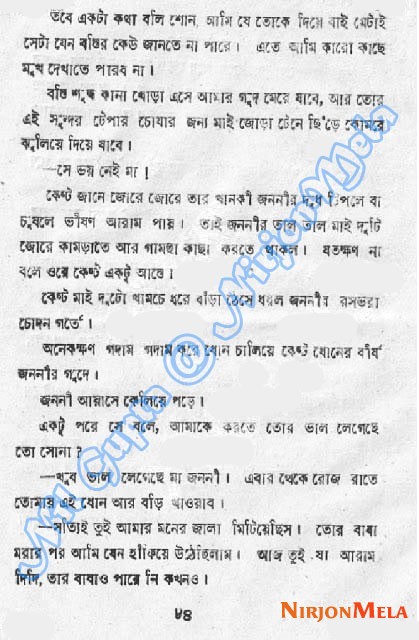 তবে একটা কথা বলি শোন, আমি যে তোকে দিয়ে বাই মেটাই
সেটা যেন বস্তির কেউ জানতে না পারে। এতে আমি কারো কাছে
মুখ দেখাতে পারব না।
বস্তি শুদ্ধ কানা খোড়া এসে আমার গুদ মেরে যাবে, আর তোর
এই সুন্দর টেপার চোষার জন্য মাই জোড়া টেনে ছিঁড়ে কোমরে
ঝুলিয়ে দিয়ে যাবে।
—সে ভয় নেই মা!
কেষ্ট জানে জোরে জোরে তার খানকী জননীর দুধ টিপলে বা
চুষলে ভীষণ আরাম পায়। তাই জননীর তাল তাল মাই দুটি
জোরে কামড়াতে আর গামছা কাছা করতে থাকল। যতক্ষণ না
বলে ওরে কেষ্ট একটু আস্তে।
কেষ্ট মাই দুটো খামচে ধরে বাঁড়া ঠেসে ধরল জননীর রসভরা
চোদন গর্তে।
অনেকক্ষণ গদাম গদাম করে ধোন চালিয়ে কেষ্ট ধোনের বীর্য
জননীর গুদে।
জননী আয়াসে কেলিয়ে পড়ে।
একটু পরে সে বলে, আমাকে করতে তোর ভাল লেগেছে
তো সোনা?
—খুব ভাল লেগেছে মা জননী। এবার থেকে রোজ রাতে
তোমায় এই ধোন আর বড়ি খাওয়াব।
—সত্যিই তুই আমার মনের জ্বালা মিটিয়েছিস। তোর বাবা
মরার পর আমি যেন হাঁফিয়ে উঠেছিলাম। আজ তুই যা আরাম
দিলি, তার বাবাও পারে নি কখনও।
৮৪
Nil Gupta @ NirjonMela
NIRJONMELA